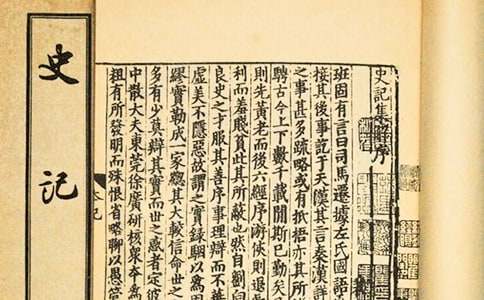 史記集解序
班固有言曰司馬遷據左氏國語
接其後事訖于天漢其言秦漢詳
之事甚多疏略或有抵梧亦其所
騁古今上下數千載間斯已勤矣
則先黃老而後六經序遊俠則退
利而羞賤貧此其所蔽也然自劉向
良史之才服其善序事理辯而不華
虛美不隱惡故謂之實錄駰以爲固
繆實勒成一家緫其大較信命世之
多有少真辯其實而世之惑者定彼
中散大夫東莞徐廣研核衆本爲
粗有所發明而殊恨省略聊以愚管
史記